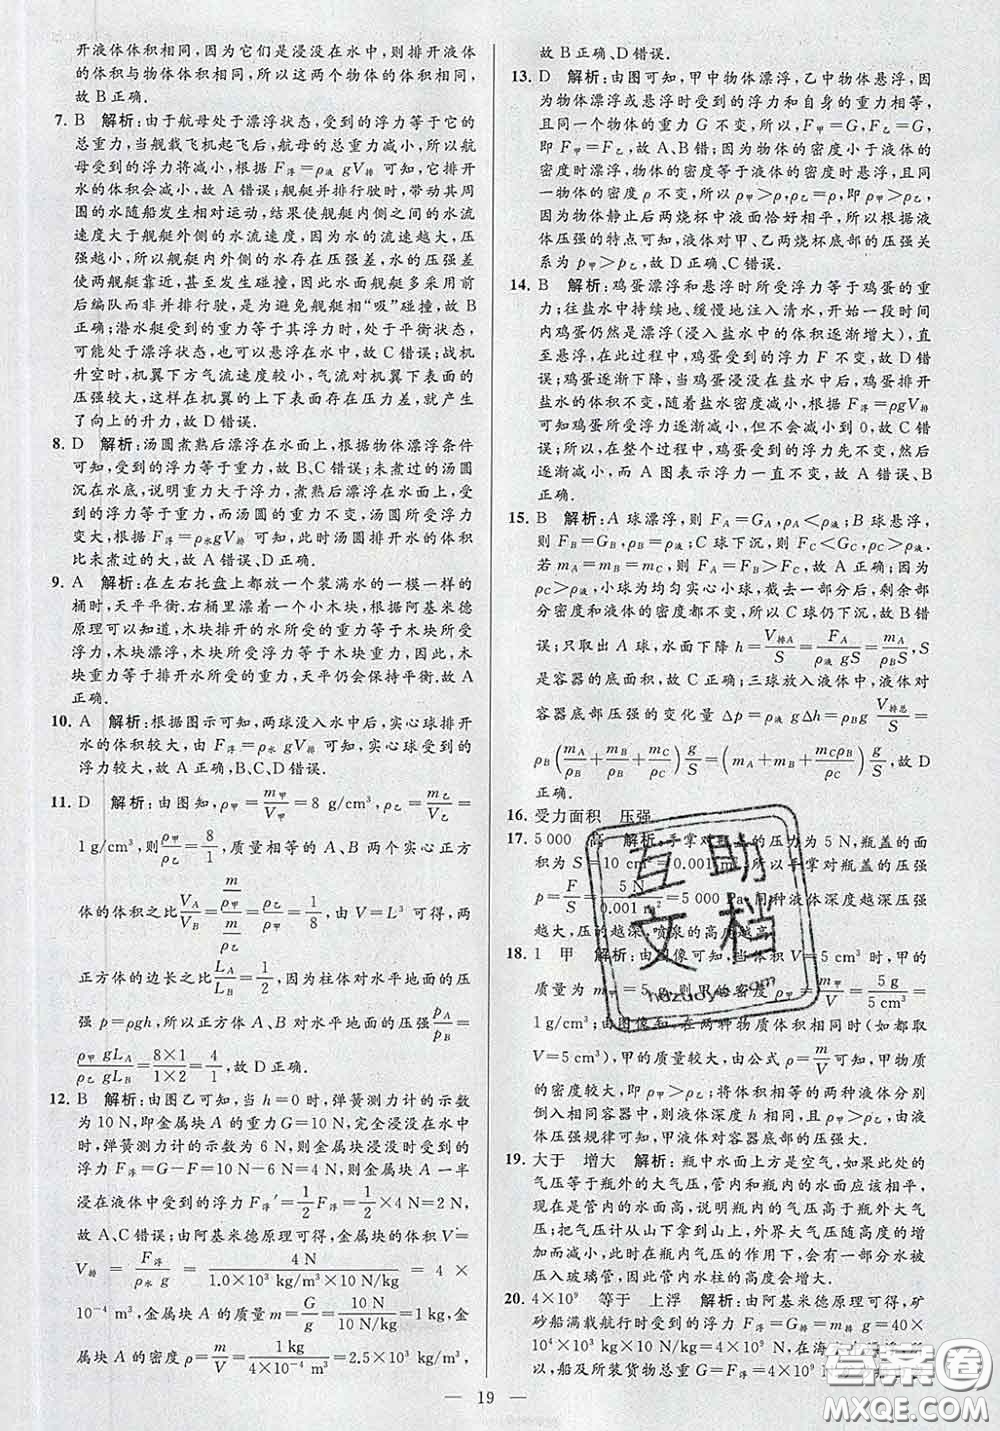 开液体体积相同,因为它们是浸没在水中,则排开液体
的体积与物体体积相同,所以这两个物体的体积相同,
故 B 正确.
7. B 解析:由于航母处于漂浮状态,受到的浮力等于它的
总重力,当舰载飞机起飞后,航母的总重力减小,所以航
母受到的浮力将减小,根据 F浮=ρ液 gV排 可知,它排开
水的体积会减小,故 A 错误;舰艇并排行驶时,带动其周
围的水随船发生相对运动,结果使舰艇内侧之间的水流
速度大于舰艇外侧的水流速度,因为水的流速越大,压
强越小,所以舰艇内外侧的水存在压强差,水的压强差使
得两舰艇靠近,甚至发生碰撞,因此水面舰艇多采用前
后编队而非并排行驶,是为避免舰艇相“吸”碰撞,故 B
正确;潜水艇受到的重力等于其浮力时,处于平衡状态,
可能处于漂浮状态,也可以悬浮在水中,故 C 错误;战机
升空时,机翼下方气流速度较小,气流对机翼下表面的
压强较大,这样在机翼的上下表面存在压力差,就产生
了向上的升力,故 D 错误.
8. D 解析:汤圆煮熟后漂浮在水面上,根据物体漂浮条件
可知,受到的浮力等于重力,故 B、C 错误;未煮过的汤圆
沉在水底,说明重力大于浮力,煮熟后漂浮在水面上,受
到的浮力等于重力,而汤圆的重力不变,汤圆所受浮力
变大,根据 F浮=ρ水gV排 可知,此时汤圆排开水的体积
比未煮过的大,故 A 错误、D 正确.
9. A 解析:在左右托盘上都放一个装满水的一模一样的
桶时,天平平衡,右桶里漂着一个小木块,根据阿基米德
原理可以知道,木块排开的水所受的重力等于木块所受
浮力,木块漂浮,木块所受浮力等于木块重力,因此,木
块重力等于排开水所受的重力,天平仍会保持平衡.故 A
正确.
10. A 解析:根据图示可知,两球没入水中后,实心球排开
水的体积较大,由 F浮=ρ水 gV排 可知,实心球受到的
浮力较大,故 A 正确,B、C、D 错误.
11. D 解析:由图知,ρ甲=m甲/V甲=8 g/cm³,ρ乙=m乙/V乙=
1 g/cm³,则ρ甲/ρ乙=8/1,质量相等的 A、B 两个实心正方
体的体积之比V_A/V_B=(m/ρ甲)/(m/ρ乙)=ρ乙/ρ甲=1/8,由 V=L³ 可得,两
正方体的边长之比L_A/L_B=1/2,因为柱体对水平地面的压
强 p=ρgh,所以正方体 A、B 对水平地面的压强p_A/p_B=
ρ甲 gL_A/ρ乙 gL_B=8×1/1×2=4/1,故 D 正确.
12. B 解析:由图乙可知,当 h=0 时,弹簧测力计的示数
为 10 N,即金属块的重力 G=10 N,完全浸没在水中
时,弹簧测力计的示数为 6 N,则金属块浸没时受到的
浮力 F浮=G-F=10 N-6 N=4 N,则金属块 A 一半
浸在液体中受到的浮力 F浮′=1/2F浮=1/2×4 N=2 N,
故 A、C 错误;由阿基米德原理可得,金属块的体积 V=
V排=F浮/ρ水 g=4 N/(1.0×10³ kg/m³×10 N/kg)=4×
10⁻⁴ m³,金属块 A 的质量 m=G/g=10 N/10 N/kg=1 kg,金
属块 A 的密度 ρ=m/V=1 kg/4×10⁻⁴ m³=2.5×10³ kg/m³,
故 B 正确、D 错误.
13. D 解析:由图可知,甲中物体漂浮,乙中物体悬浮,因
为物体漂浮或悬浮时受到的浮力和自身的重力相等,
且同一个物体的重力 G 不变,所以,F甲=G,F乙=G,
即 F甲=F乙,故 A、B 错;因为物体的密度小于液体的
密度时漂浮,物体的密度等于液体的密度时悬浮,且同
一物体的密度 ρ 不变,所以 ρ甲>ρ,ρ乙=ρ,即 ρ甲>ρ乙,
因为物体静止后两烧杯中液面恰好相平,所以根据液
体压强的特点可知,液体对甲、乙两烧杯底部的压强关
系为 p甲>p乙,故 D 正确、C 错误.
14. B 解析:鸡蛋漂浮和悬浮时所受浮力等于鸡蛋的重
力;往盐水中持续地、缓慢地注入清水,开始一段时间
内鸡蛋仍然是漂浮(浸入盐水中的体积逐渐增大),直
至悬浮,在此过程中,鸡蛋受到的浮力 F 不变,故 D 错
误;鸡蛋逐渐下降,当鸡蛋浸没在盐水中时,鸡蛋排开
盐水的体积不变,随着盐水密度减小,根据 F浮=ρgV排
可知鸡蛋所受浮力逐渐减小,但不会减小到 0,故 C 错
误;所以,在整个过程中,鸡蛋受到的浮力先不变,然后
逐渐减小,而 A 图表示浮力一直不变,故 A 错误、B
正确.
15. B 解析:A 球漂浮,则 F_A=G_A,ρ_A<ρ液;B 球悬浮,
则 F_B=G_B,ρ_B=ρ液;C 球下沉,则 F_C<G_C,ρ_C>ρ液.
若 m_A=m_B=m_C,则 F_A=F_B>F_C,故 A 错误;因为
ρ_C>ρ液,小球为均匀实心小球,截去一部分后,剩余部
分密度和液体的密度都不变,所以 C 球仍下沉,故 B 错
误;只取出 A 球,水面下降 h=V排A/S=F_A/ρ液 gS=m_A/ρ_B S,S
是容器的底面积,故 C 正确;三球放入液体中,液体对
容器底部压强的变化量 Δp=ρ液 gΔh=ρ_B g V排总/S=
ρ_B(m_A/ρ_B+m_B/ρ_B+m_C/ρ_C)g/S=(m_A+m_B+m_Cρ_B/ρ_C)g/S,故 D
正确.
16. 受力面积 压强
17. 5 000 高 解析:手掌对瓶盖的压力为 5 N,瓶盖的面
积为 S=10 cm²=0.001 m²,所以手掌对瓶盖的压强
p=F/S=5 N/0.001 m²=5 000 Pa,同种液体深度越深压强
越大,压强越大,喷泉的高度越高.
18. 1 甲 解析:由图像可知,当体积 V=5 cm³ 时,甲的
质量为 m甲=5 g,则甲的密度 ρ甲=m甲/V=5 g/5 cm³=
1 g/cm³;由图像知,在两种物质体积相同时(如都取
V=5 cm³),甲的质量较大,由公式 ρ=m/V可知,甲物质
的密度较大,即 ρ甲>ρ乙;将体积相等的两种液体分别
倒入相同容器中,则液体深度 h 相同,且 ρ甲>ρ乙,由液
体压强规律可知,甲液体对容器底部的压强大.
19. 大于 增大 解析:瓶中水面上方是空气,如果此处的
气压等于瓶外的大气压,管内和瓶内的水面应该相平,
现在是管内的水面高,说明瓶内的气压高于瓶外大气
压;把气压计从山下拿到山上,外界大气压随高度的增
加而减小,在瓶内气压的作用下,会有一部分水被
压入玻璃管,因此管内水柱的高度会增大.
20. 4×10⁹ 等于 上浮 解析:由阿基米德原理可得,矿
砂船满载航行时受到的浮力 F浮=G排=m排 g=40×
10⁴×10³ kg×10 N/kg=4×10⁹ N,在海水中漂浮,所
以,船及所装货物总重 G=F浮=4×10⁹ N
— 19 —
互助文档
答案圈
MXQE.COM